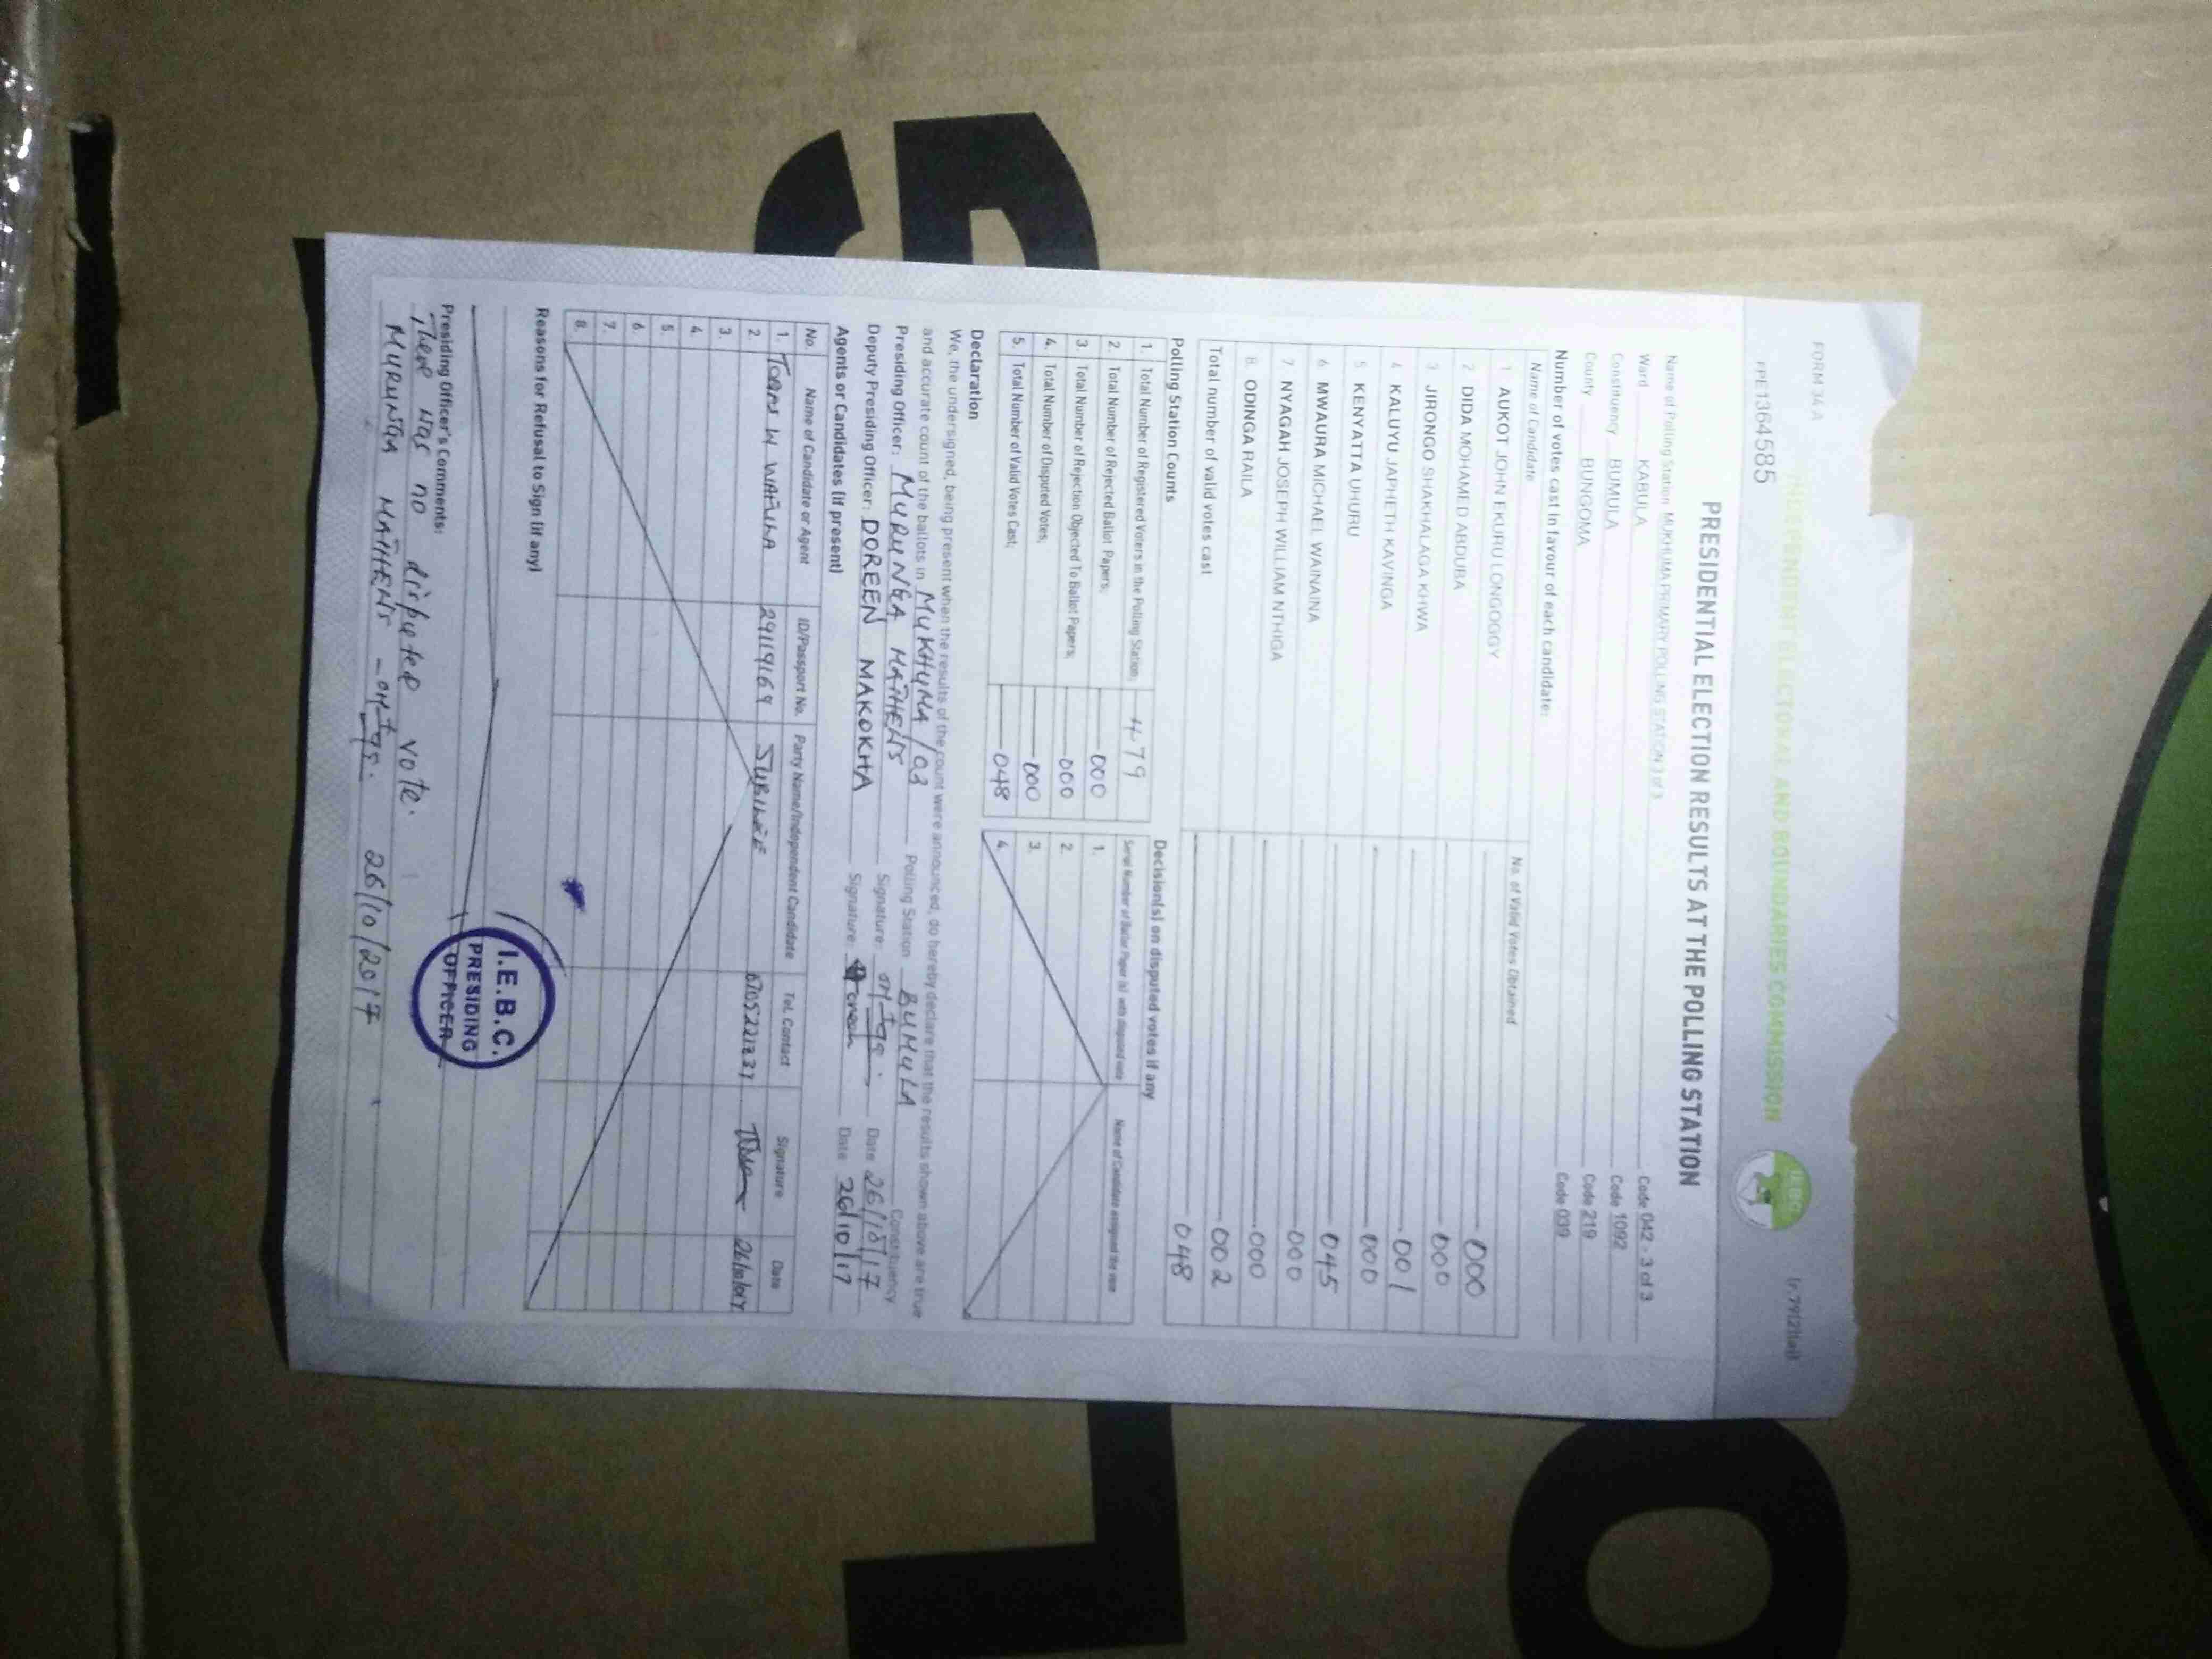 FORM 34 A
(r.79(2)(a))
INDEPENDENT ELECTORAL AND BOUNDARIES COMMISSION
IEBC
PRE1364585
PRESIDENTIAL ELECTION RESULTS AT THE POLLING STATION
Name of Polling Station MUKHUMA PRIMARY POLLING STATION 3 of 3 Code 042 - 3 of 3
Ward KABULA Code 1092
Constituency BUMULA Code 219
County BUNGOMA Code 039
Number of votes cast in favour of each candidate:
Name of Candidate No. of Valid Votes Obtained
1 AUKOT JOHN EKURU LONGOGGY 000
2 DIDA MOHAMED ABDUBA 000
3 JIRONGO SHAKHALAGA KHWA 001
4 KALUYU JAPHETH KAVINGA 000
5 KENYATTA UHURU 045
6 MWAURA MICHAEL WAINAINA 000
7 NYAGAH JOSEPH WILLIAM NTHIGA 000
8. ODINGA RAILA 002
Total number of valid votes cast 048
Polling Station Counts
1. Total Number of Registered Voters in the Polling Station; 479
2. Total Number of Rejected Ballot Papers; 000
3. Total Number of Rejection Objected To Ballot Papers; 000
4. Total Number of Disputed Votes; 000
5. Total Number of Valid Votes Cast; 048
Decision(s) on disputed votes if any
Serial Number of Ballot Paper (s) with disputed vote Name of Candidate assigned the vote
1.
2.
3.
4.
Declaration
We, the undersigned, being present when the results of the count were announced, do hereby declare that the results shown above are true
and accurate count of the ballots in MUKHUMA /03 Polling Station BUMULA Constituency
Presiding Officer: MURUNGA MATHENS Signature: Date 26/10/17
Deputy Presiding Officer: DOREEN MAKOKHA Signature: Date 26/10/17
Agents or Candidates (if present)
No. Name of Candidate or Agent ID/Passport No. Party Name/Independent Candidate Tel. Contact Signature Date
1. W WAFULA 29119169 JUBILEE
2.
3.
4.
5.
6.
7.
8.
Reasons for Refusal to Sign (if any)
I.E.B.C.
PRESIDING
OFFICER
Presiding Officer's Comments:
There was no disputed vote.
MURUNGA MATHENS 26/10/2017